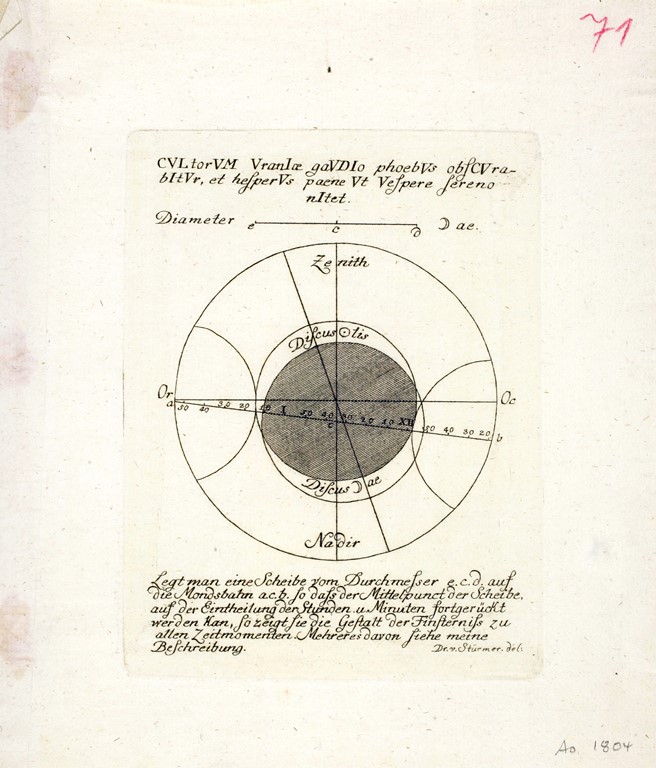 71
CVLtorVM VranIæ gaVDIo phoebVs obſCVra-
bItVr, et heſperVs paene Vt Veſpere ſereno
nItet.
Diameter e c d ☽ae.
Zenith
Diſcus ☉lis
Or Oc
a 50 40 30 20 10 I 50 40 30 20 10 XII 50 40 30 20 b
c
Diſcus ☽ae
Nadir
Legt man eine Scheibe vom Durchmeſser e.c.d. auf
die Mondsbahn a.c.b. ſo daſs der Mittelpunct der Scheibe,
auf der Eintheilung der Stunden u. Minuten fortgerückt
werden kan, ſo zeigt ſie die Geſtalt der Finſterniſs zu
allen Zeitmomenten. Mehreres davon ſiehe meine
Beſchreibung. Dr. v. Stürmer. del.
Ao 1804